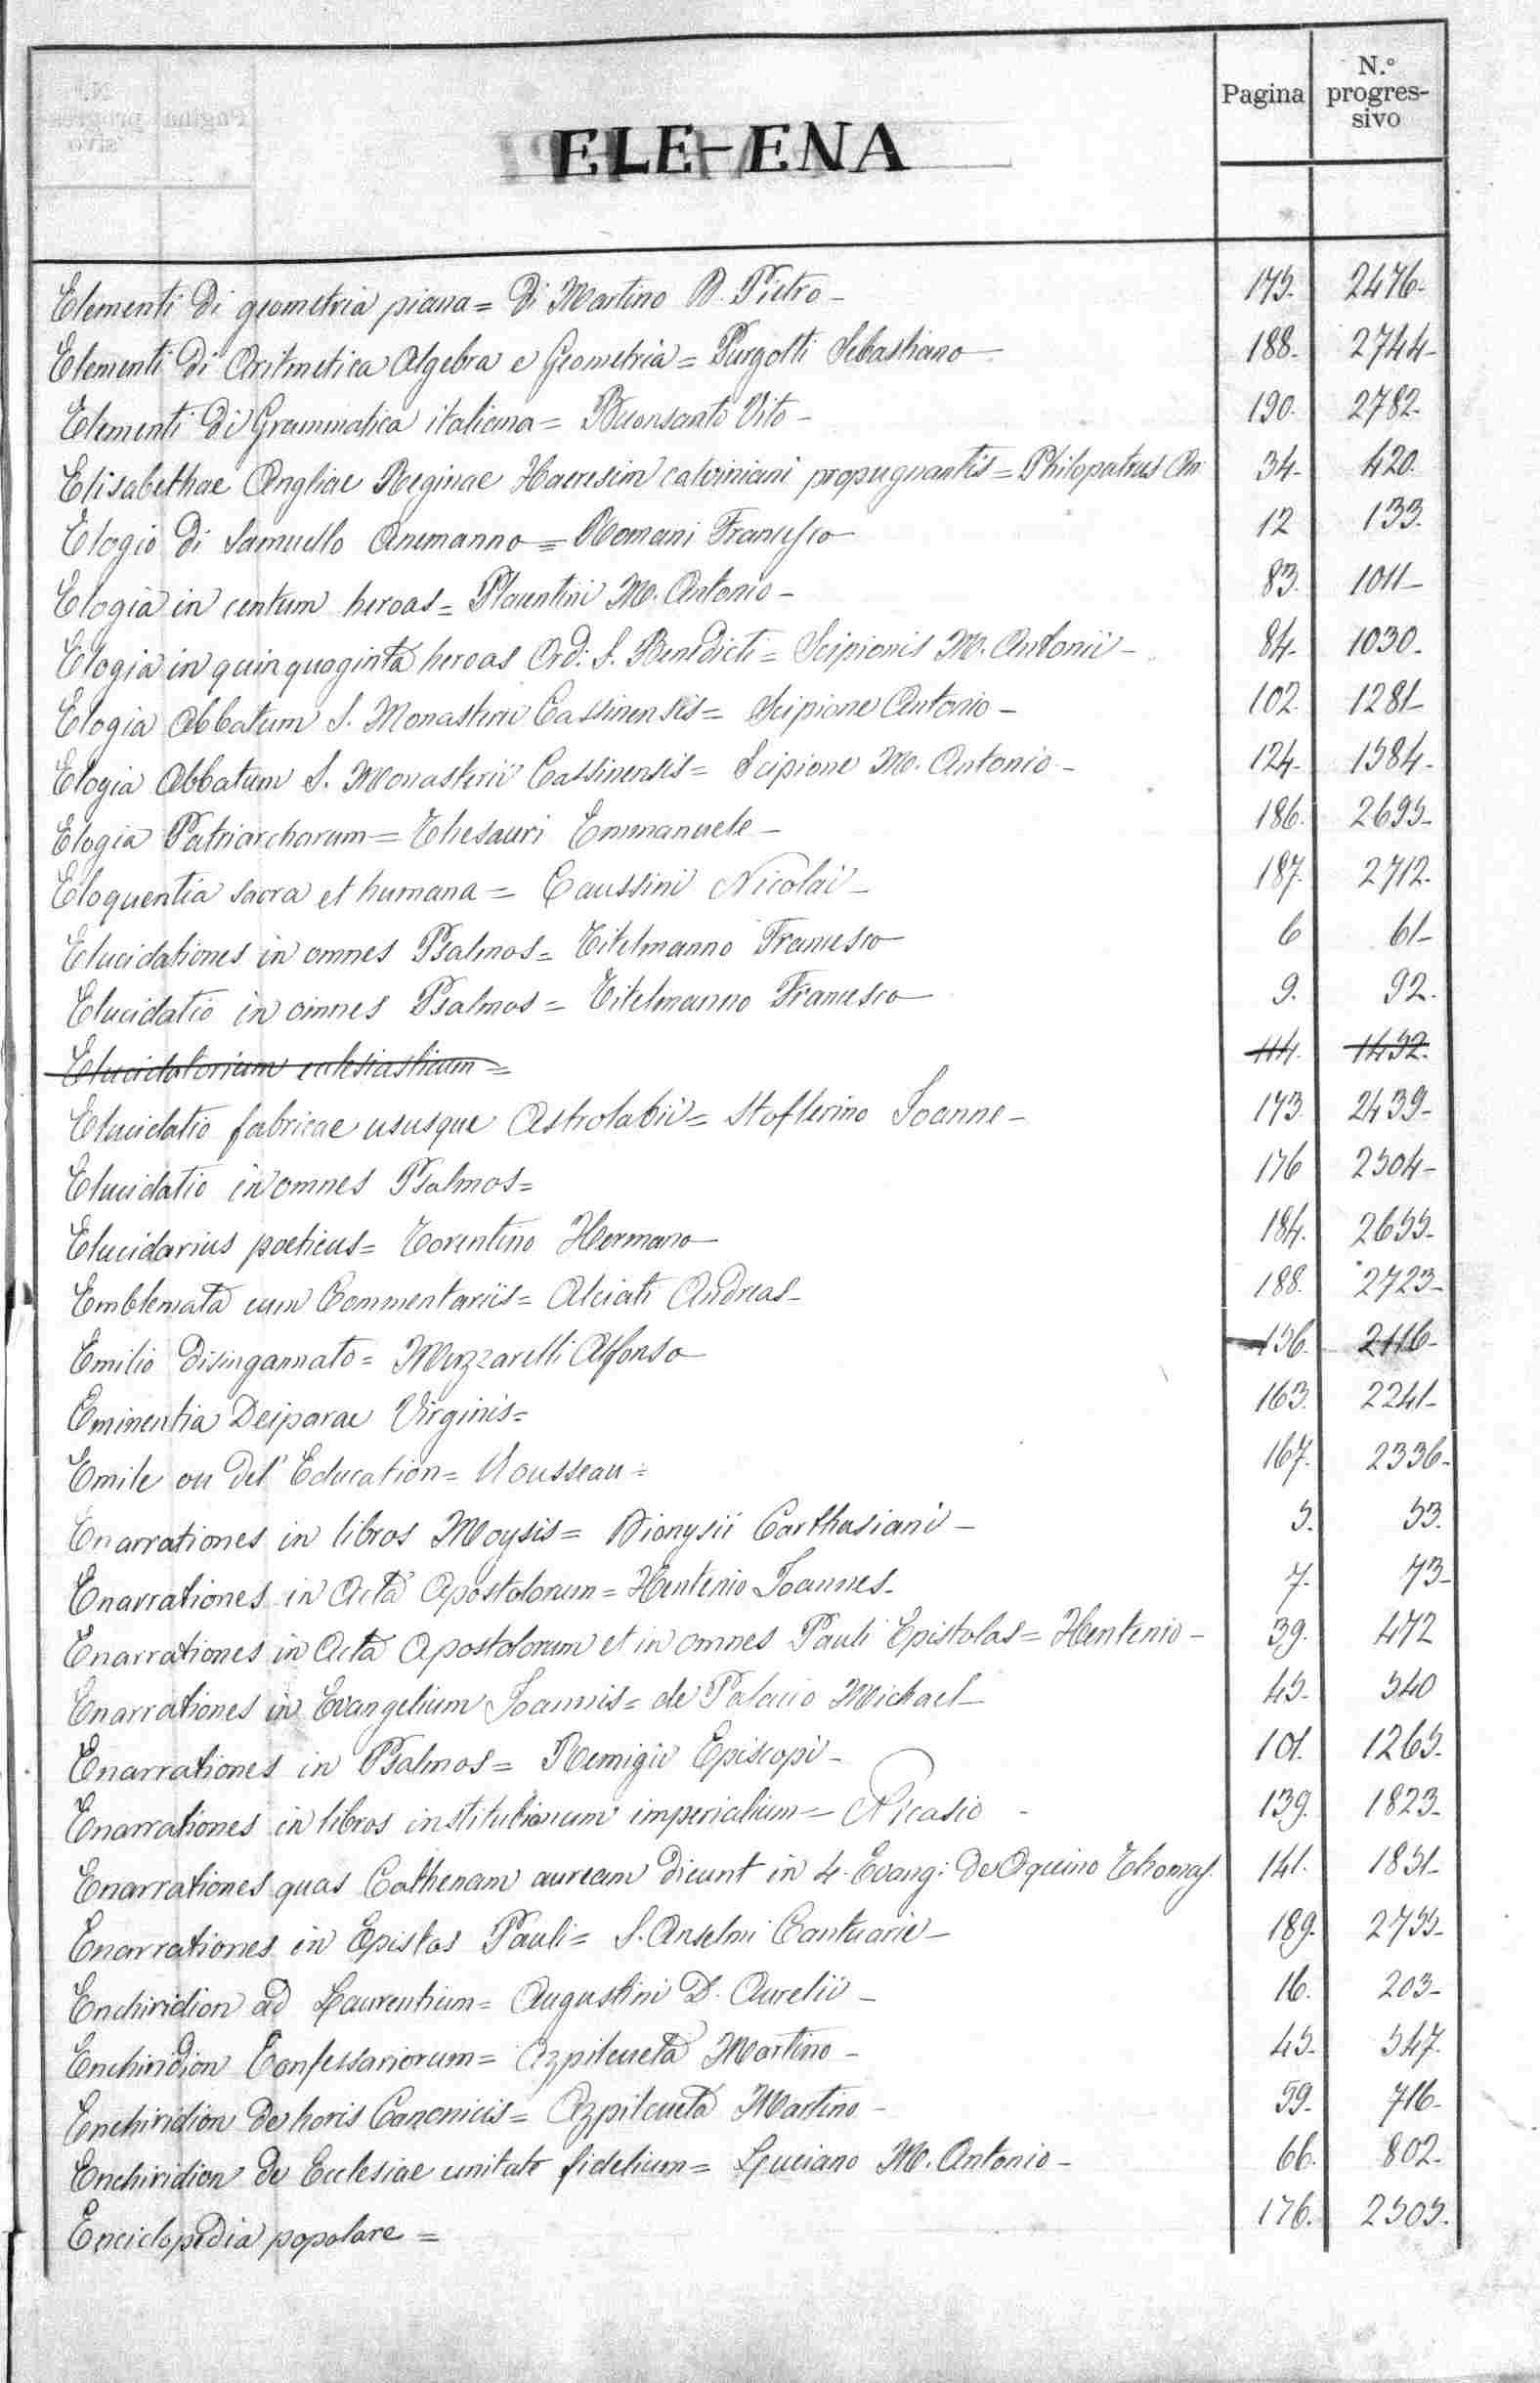 Pagina N.º progres-sivo
ELE-ENA
Elementi di geometria piana = Di Martino D. Pietro - 175. 2476-
Elementi di Aritmetica Algebra e Geometria = Purgotti Sebastiano 188. 2744-
Elementi di Grammatica italiana = Buonsanto Vito - 190. 2782-
Elisabethae Angliae Reginae Haeresim calviniani propugnantis = Philopatrus An: 34- 420.
Elogio di Samuello = Romani Francesco 12 133.
Elogia in centum heroas = Plauntini M. Antonio - 83. 1011-
Elogia in quinquaginta heroas Ord: S. Benedicti = Scipionis M. Antonii - 84- 1030-
Elogia Abbatum S. Monasterii Cassinensis = Scipione Antonio - 102. 1281-
Elogia Abbatum S. Monasterii Cassinensis = Scipione M. Antonio - 124- 1584-
Elogia Patriarcharum = Thesauri Emmanuele - 186. 2695-
Eloquentia sacra et humana = Caussini Nicolai - 187. 2712.
Elucidationes in omnes Psalmos = Titelmanno Francesco 6 61-
Elucidatio in omnes Psalmos = Titelmanno Francesco 9. 92.
Elucidatorium eclesiasticum = 114. 1452.
Elucidatio fabricae ususque Astrolabii = Stoflerino Joanne - 173. 2439-
Elucidatio in omnes Psalmos = 176 2504-
Elucidarius poeticus = Torentino Hermano 184. 2655-
Emblemata cum Commentariis = Alciati Andreas - 188. 2723-
Emilio disingannato = Muzzarelli Alfonso 156. 2116-
Eminentia Deiparae Virginis = 163. 2241-
Emile ou del' Education = Rousseau = 167. 2336-
Enarrationes in libros Moysis = Dionysii Carthusiani - 5. 53.
Enarrationes in Acta Apostolorum = Hentenio Joannes - 7. 73-
Enarrationes in Acta Apostolorum et in omnes Pauli Epistolas = Hentenio - 39. 472
Enarrationes in Evangelium Joannis = de Palacio Michael 45- 540
Enarrationes in Psalmos = Remigii Episcopi - 101. 1265-
Enarrationes in libros institutionum imperialium = Nicasio - 139. 1823-
Enarrationes quas Cathenam auream dicunt in 4. Evang: De Aquino Thomas. 141. 1851-
Enarrationes in Epistas Pauli = S. Anselmi Cantuarie - 189. 2755-
Enchiridion ad Laurentium = Augustini D. Aurelii - 16. 203-
Enchiridion Confessariorum = Azpilcueta Martino - 45- 547.
Enchiridion de horis Canonicis = Azpilcueta Martino - 59- 716-
Enchiridion de Ecclesiae unitate fidelium = Luciano M. Antonio - 66. 802-
Enciclopedia popolare = 176. 2505.